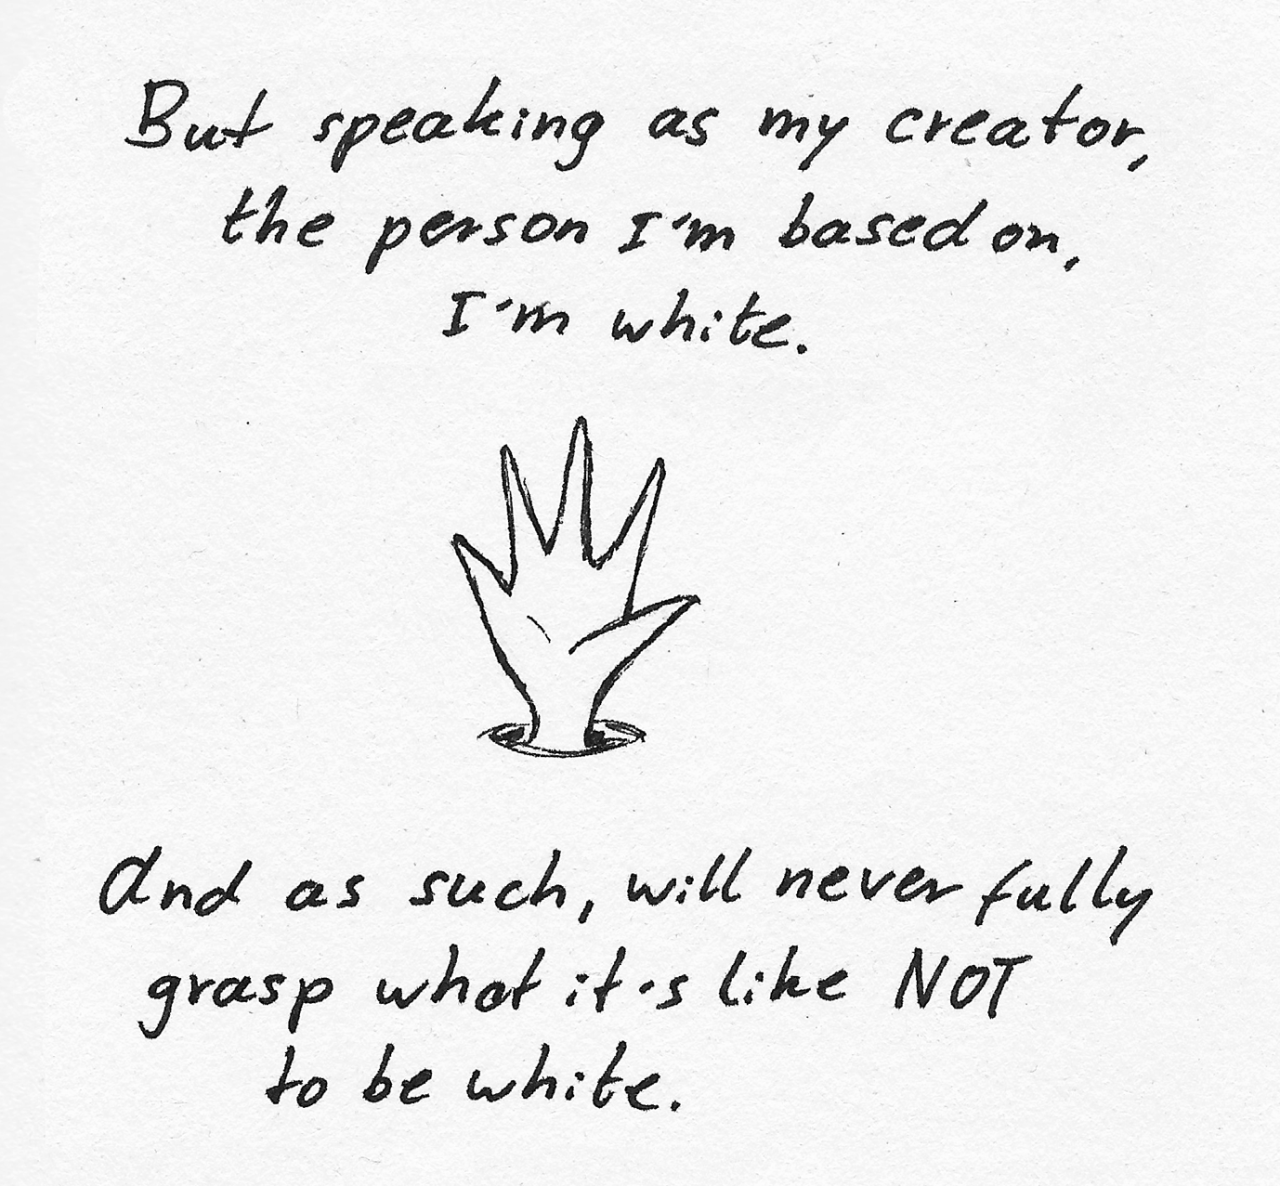 But speaking as my creator,
the person I'm based on,
I'm white.
And as such, will never fully
grasp what it's like NOT
to be white.